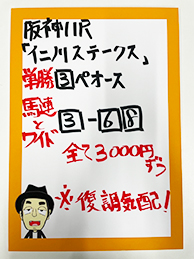 阪神11R
「イニノリステークス」
単勝③ペオース
馬連とワイド ③-⑥⑧
全て3000円ずつ
※復調気配!